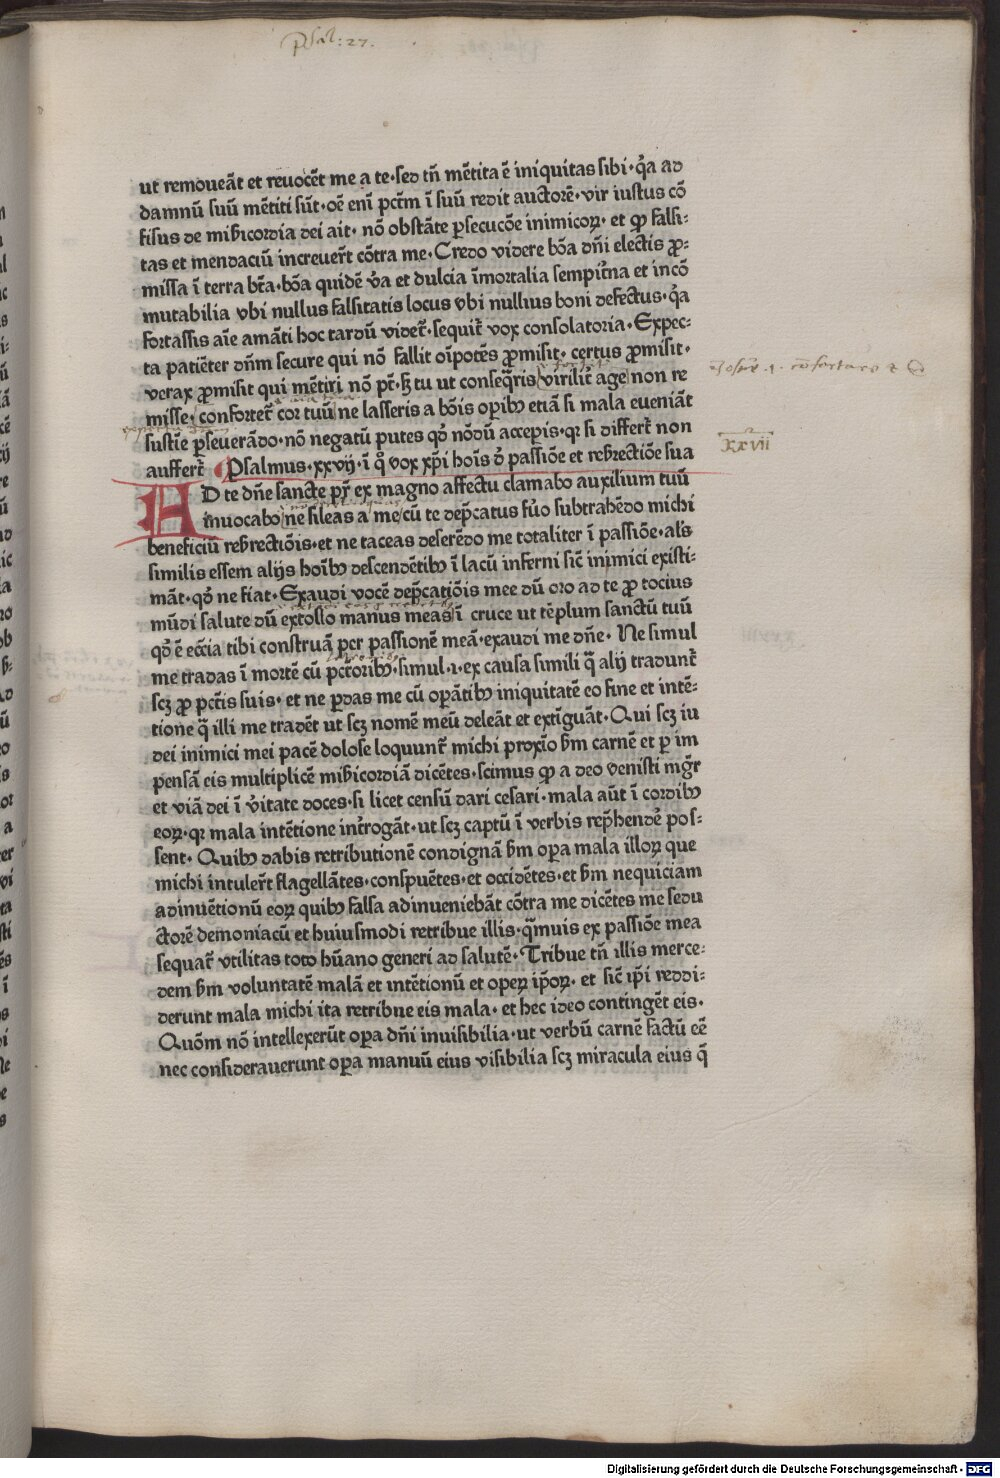 Psal: 27.
ut remoueāt et reuocēt me a te·sed tñ mētita ē iniquitas sibi·q̇a ad
damnū suū mētiti sūt·oē eni pctm̄ ī suū redit auctorē·vir iustus cō
fisus de mi̅bicordia dei ait· nō obstāte ꝑsecucōe inimicoꝝ· et ꝙ falsi⸗
tas et mendaciū increuer̄t cōtra me·Credo videre bōa dn̄i electis ꝓ⸗
missa ī terra br̄a·bōa quidē v̓a et dulcia īmortalia sempit̓na et incō
mutabilia vbi nullus falsitatis locus vbi nullius boni defectus·q̇a
fortassis aīe amāti hoc tardū videt̄·sequit̄ vox consolatoria·Expec⸗
ta patiēter dn̄m secure qui nō fallit oīpotēs ꝓmisit· certus ꝓmisit·
verax ꝓmisit qui mētiri nō pt̄·hʒ tu ut conseq̄ris virilit̄ age non re
misse· confortet̄ cor tuū ne lasseris a bōis oꝑibꝰ etiā si mala eueniāt
sustīe ꝑseuerādo·nō negatū putes qd̓ nōdū accepis·qꝛ si differt̄ non
auffert̄ Psalmus·xxvij·ī q̊ vox xp̄i hoīs d̓ passiōe et resr̄rectiōe sua
AD te dn̄e sancte pr̄ ex magno affectu clamabo auxilium tuū
inuocabo ne sileas a me cū te dep̄catus fu̓o subtrahēdo michi
beneficiū resr̄rectiōis·et ne taceas deserēdo me totaliter ī passiōe·al̓s
similis essem alijs hoībꝰ descendētibꝰ ī lacū inferni sic̄ inimici existi⸗
māt·qd̓ ne fiat·Exaudi vocē dep̄catiōis mee dū oro ad te ꝓ tocius
mūdi salute dū extollo manus meas ī cruce ut tēplum sanctū tuū
qd̓ ē ecc̄ia tibi construā per passionē meā·exaudi me dn̄e· Ne simul
me tradas ī mortē cū pctōribꝰ·simul·ı·ex causa simili q̄ alij tradunt̄
scʒ ꝓ pctīs suis· et ne ꝑdas me cū oꝑātibꝰ iniquitatē eo fine et intē⸗
tione q̄ illi me tradēt ut scʒ nomē meū deleāt et extīguāt·Qui scʒ iu
dei inimici mei pacē dolose loquunt̄ michi proxīo sm̄ carnē et ꝑ im
pensā eis multiplicē mi̅bicordiā dicētes·scimus ꝙ a deo venisti mgr̄
et viā dei ī v̓itate doces·si licet censū dari cesari·mala aūt ī cordibꝰ
eoꝝ·qꝛ mala intētione int̓rogāt·ut scʒ captū ī verbis rep̄hendēt pos⸗
sent· Quibꝰ dabis retributionē condignā sm̄ oꝑa mala illoꝝ que
michi intuler̄t flagellātes·conspuētes·et occidētes·et sm̄ nequiciam
adinuētionū eoꝝ quibꝰ falsa adinueniebāt cōtra me dicētes me sedu
ctorē demoniacū et huiusmodi retribue illis·q̄muis ex passiōe mea
sequat̄ vtilitas toto hūano generi ad salutē·Tribue tñ illis merce⸗
dem sm̄ voluntatē malā et intētionū et opeꝝ ip̄oꝝ· et sic̄ ip̄i reddi⸗
derunt mala michi ita retribue eis mala·et hec ideo contingēt eis·
Quōm nō intellexerūt oꝑa dn̄i inuisibilia·ut verbū carnē factū eē
nec considerauerunt oꝑa manuū eius visibilia scʒ miracula eius q̄
XXVII
Digitalisierung gefördert durch die Deutsche Forschungsgemeinschaft - DFG